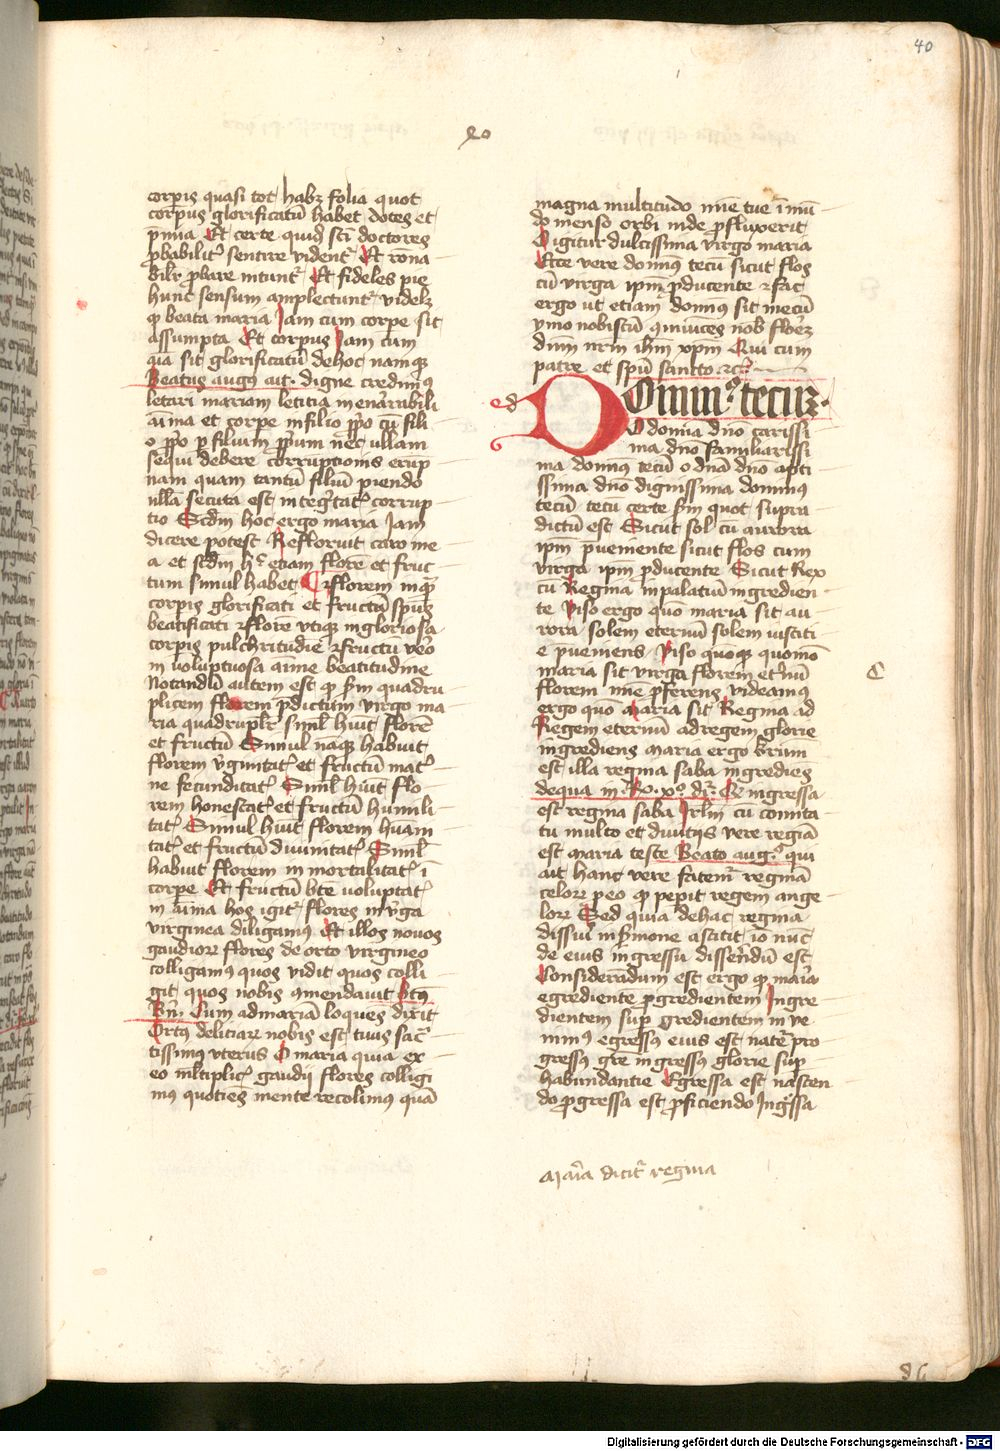 40
40
corpis quasi tot habꝫ folia quot
corpus glorificatū habet dotes et
p̄mia Et certe quidā scī doctores
ꝓbabiliṫ sentire vident᷑ Et rōna
bilr̄ ꝓbare intunt᷑ Et fideles pie
hunc sensum amplectunt᷑ videlꝫ
ꝙ beata maria Jam cum corpe sit
assumpta Et corpus Jam cum
aīa sit glorificatū de hoc namqꝫ
Beatus augꝯ ait. digne credimꝰ
letari mariam letitia inenarrabili
aīma et corpe in filio ꝓp̄o cū fili
o ꝓp̄o ꝑ filium ꝓp̄um nec ullam
sequi debere corruptionis erūp
nam quam tantū filiū pariendo
nulla secuta est integ̾tat᷑ corrup
tio Scdm hoc ergo maria Jam
dicere potest Refloruit caro me
a et scdm h̾ etiam florē et fruc
tum simul habet Et florem inqꝫ
corpis glorificati et fructū spūs
beatificati et florē vtiqꝫ in gloriosa
corpis pulchritudīe et fructū vero
in voluptuosa anime beatitudine
Notandū autem est ꝙ scdm quadru
plicem florem p̄dictum virgo ma
ria quadruplr̄ simul huit florē
et fructū Simul nāqꝫ habuit
florem v̾ginitat᷑ et fructū mat᷑
ne fecunditat᷑ Simil huit flo
rem honestat᷑ et fructū humili
tat᷑ Simul huit florem hūani
tat᷑ et fructū diuinitat᷑ Simil
habuit florem in mortalitat᷑ ī
corpe Et fructū bt̄e voluptat᷑
in aīma hos igit᷑ flores in v̾ga
virginea diligamꝰ Et illos nouos
gaudiorꝝ flores de orto virgineo
colligamꝰ quos vidit quos colli
git quos nobis ꝯmendauit btūs
Bn̄. Cum ad mariā loquens dixit
Ortꝰ deliciarꝝ nobis est tuus sac᷑
tissimꝰ vterus O maria quia ex
eo mltiplic᷑ gaudii flores colligi
mꝰ quotiēs mente recolimus quā
magna multitudo mīe tue ī mū
do menso orbi inde ꝓfluxerit
O igitur dulcissima virgo maria
Ecce vere domīꝰ tecū sicut flos
cū virga ipm̄ ꝓducente et fac
ergo ut etiam domīus sit mecū
ymo nobiscū ꝯmiuices nob floꝫ
dūm nrm̄ ihm̄ xpm̄ Qui cum
patre et spū sancto ꝛcꝫ
d
Domīnꝰ tecum.
O domīa dn̄o carissi
ma dn̄o familiarissi
ma domīnꝰ tecū o dnā dn̄o apti
ssima dn̄o dignissima dominꝰ
tecū tecū certe sm̄ quot supra
dictū est Sicut sol cū aurora
ipm̄ p̄ueniente sicut flos cum
virga ipm̄ ꝓducente Sicut Rex
cū Regina in palatiū ingredien
te Viso ergo quō maria sit au
rora solem eternū solem iustiti
e p̄ueniens Viso quoqꝫ quomō
maria sit virga florem et̾nū
florem mīe ꝓferens videamꝰ
ergo quo maria sit Regina ad
Regem eternū ad regem glorie
ingrediens Maria ergo
est illa regina saba ingrediēs
de qua in Re. xº. dr̄. Et ingressa
est regina saba Jrlm̄ cū comita
tu multo et diuitijs vere reginā
est maria teste Beato augꝯ. qui
ait hanc vere fatem᷑ reginā
celorꝝ ꝑ eo ꝙ pepit regem ange
lorꝝ Sed quia de hac regina
dissui in s̾mone astitit iō nūc
de eius ingressu disserendū est
Considerandum est ergo ꝙ maria
egrediente ꝓgredientem Ingre
dientem sup̄ gredientem in ve
nimꝰ egressꝰ eius est nat̾e pro
gressꝰ gr̄e ingressꝰ glorie sup̄
habundantie Egressa est nascen
do ꝓgressa est ꝓficiendo Ing̾ssa
C
Maria dicit᷑ regina
Digitalisierung gefördert durch die Deutsche Forschungsgemeinschaft - DFG